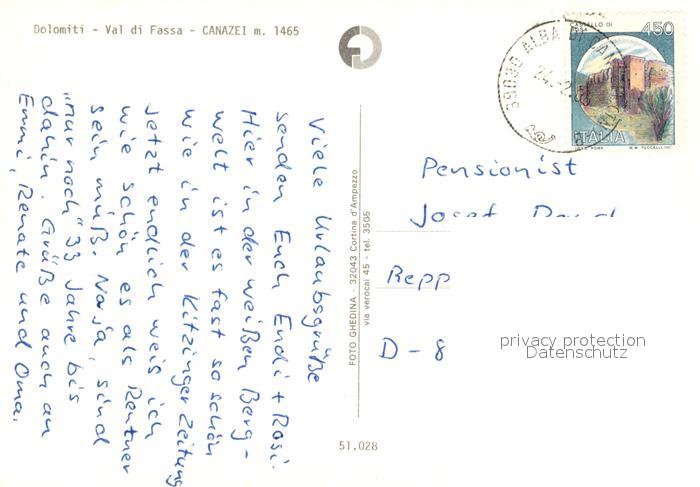 Dolomiti - Val di Fassa - CANAZEI m. 1465
Viele Urlaubsgrüße
senden Euch Erndi + Rosi.
Hier in der weißen Berg-
welt ist es fast so schön
wie in der Kitzinger Zeitung
Jetzt endlich weis ich
wie schön es als Rentner
sein muß. Na ja, sind
"nur noch" 33 Jahre bis
dahin. Grüße auch an
Emmi, Renate und Oma.
FOTO GHEDINA - 32043 Cortina d'Ampezzo
via verocai 45 - tel. 3505
51.028
CASTELLO DI
450
ITALIA
ROMA
39030 ALBA DI CAN
24.-2.
Pensionist
Josef
Repp
D-8
privacy protection
Datenschutz